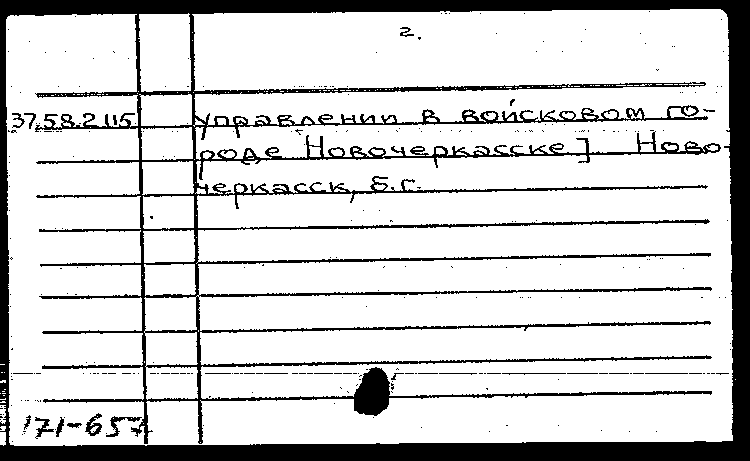 2.
37.58.2.115 управлении в войсковом го-
роде Новочеркасске]. Ново-
черкасск, б.г.
171-657